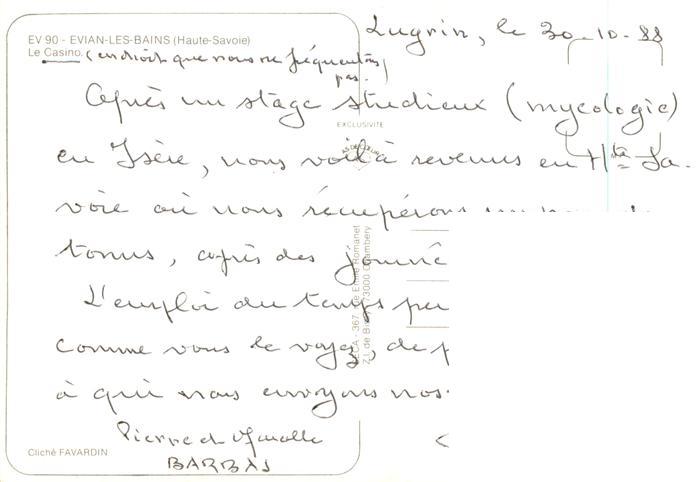 Lugrin, le 30-10-88
EV 90 - EVIAN-LES-BAINS (Haute-Savoie)
Le Casino. (endroit que nous ne fréquentons
pas.)
Après un stage studieux (mycologie)
EXCLUSIVITE
AS DE CŒUR
en Isère, nous voilà revenus en Hte Sa-
voie où nous récupérons un
tonus, après des journé
L'emploi du temps
comme vous le voyez, de
à qui nous envoyons nos
Pierre et
BARBAS
Cliché FAVARDIN
367, Rue Emile Romanet
Z.I. de 73000 Chambéry